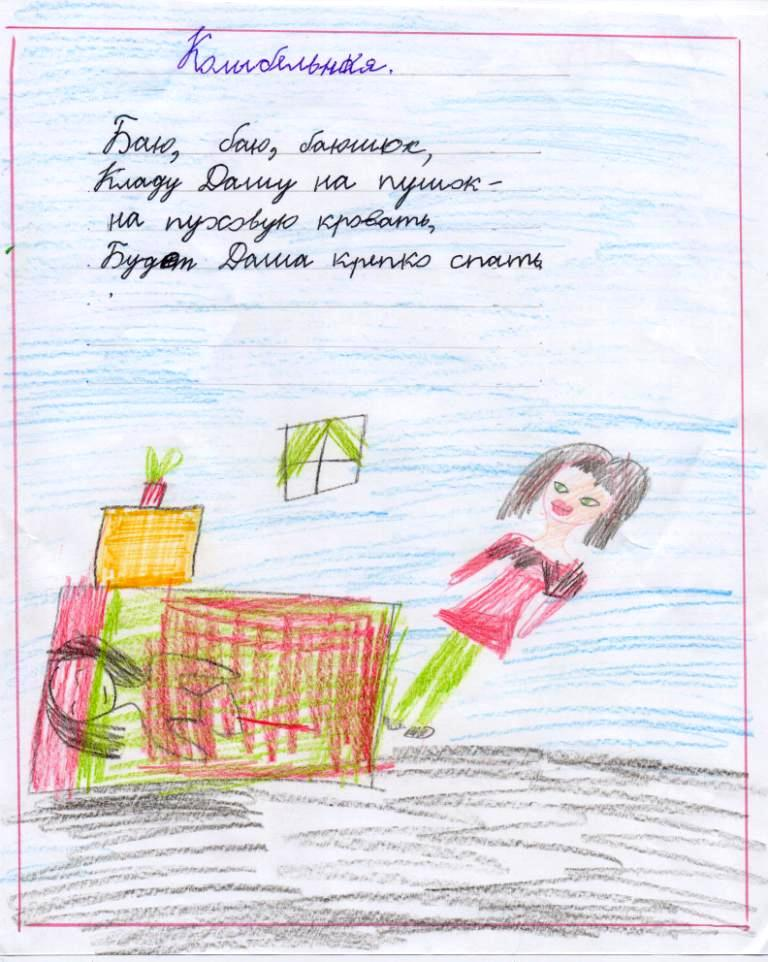 Колыбельная.
Баю, баю, баюшок,
Кладу Дашу на пушок -
на пуховую кровать,
Будет Даша крепко спать.